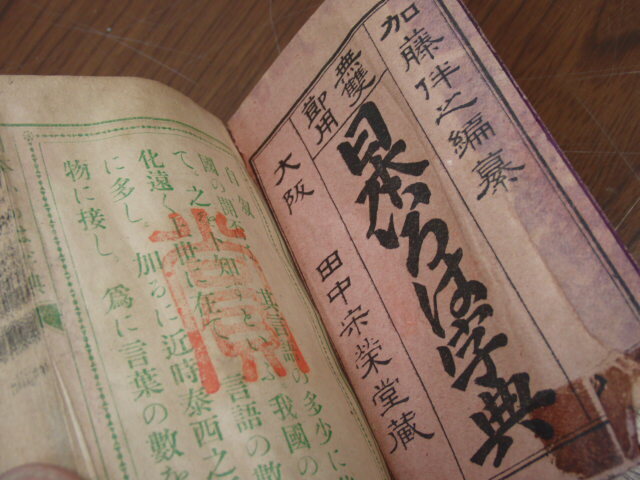 加藤伴之編纂
無雙
即用
日本いろは字典
大阪 田中宋榮堂蔵
自叙
其言語の多少に
國の開 知 と 我國の
て、之 言語の數
化遠く上世に在て
に多し。加るに近時泰西之
物に接し。爲に言葉の數を